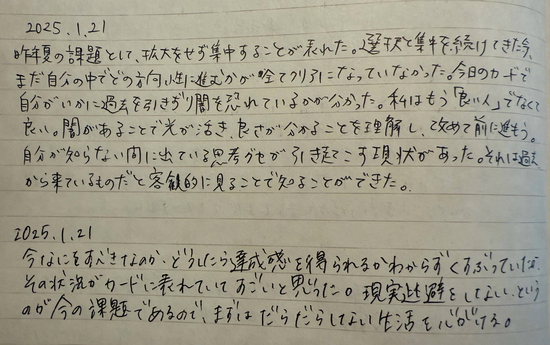 2025.1.21
昨年夏の課題として、拡大をせず集中することが表れた。選択と集中を続けてきた今、
まだ自分の中でどの方向性に進むかが全てクリアになっていなかった。今日のカードで
自分がいかに過去を引きずり闇を恐れているかが分かった。私はもう「良い人」でなくて
良い。闇があることで光が活き、良さが分かることを理解し、改めて前に進もう。
自分が知らない間に出ている思考グセが引き起こす現状があった。それは過去
から来ているものだと客観的に見ることで知ることができた。
2025.1.21
今なにをすべきなのか、どうしたら達成感を得られるかわからずくすぶっていたな、
その状況がカードに表れていてすごいと思った。現実逃避をしない、という
のが今の課題であるので、まずはだらだらしない生活を心がける。